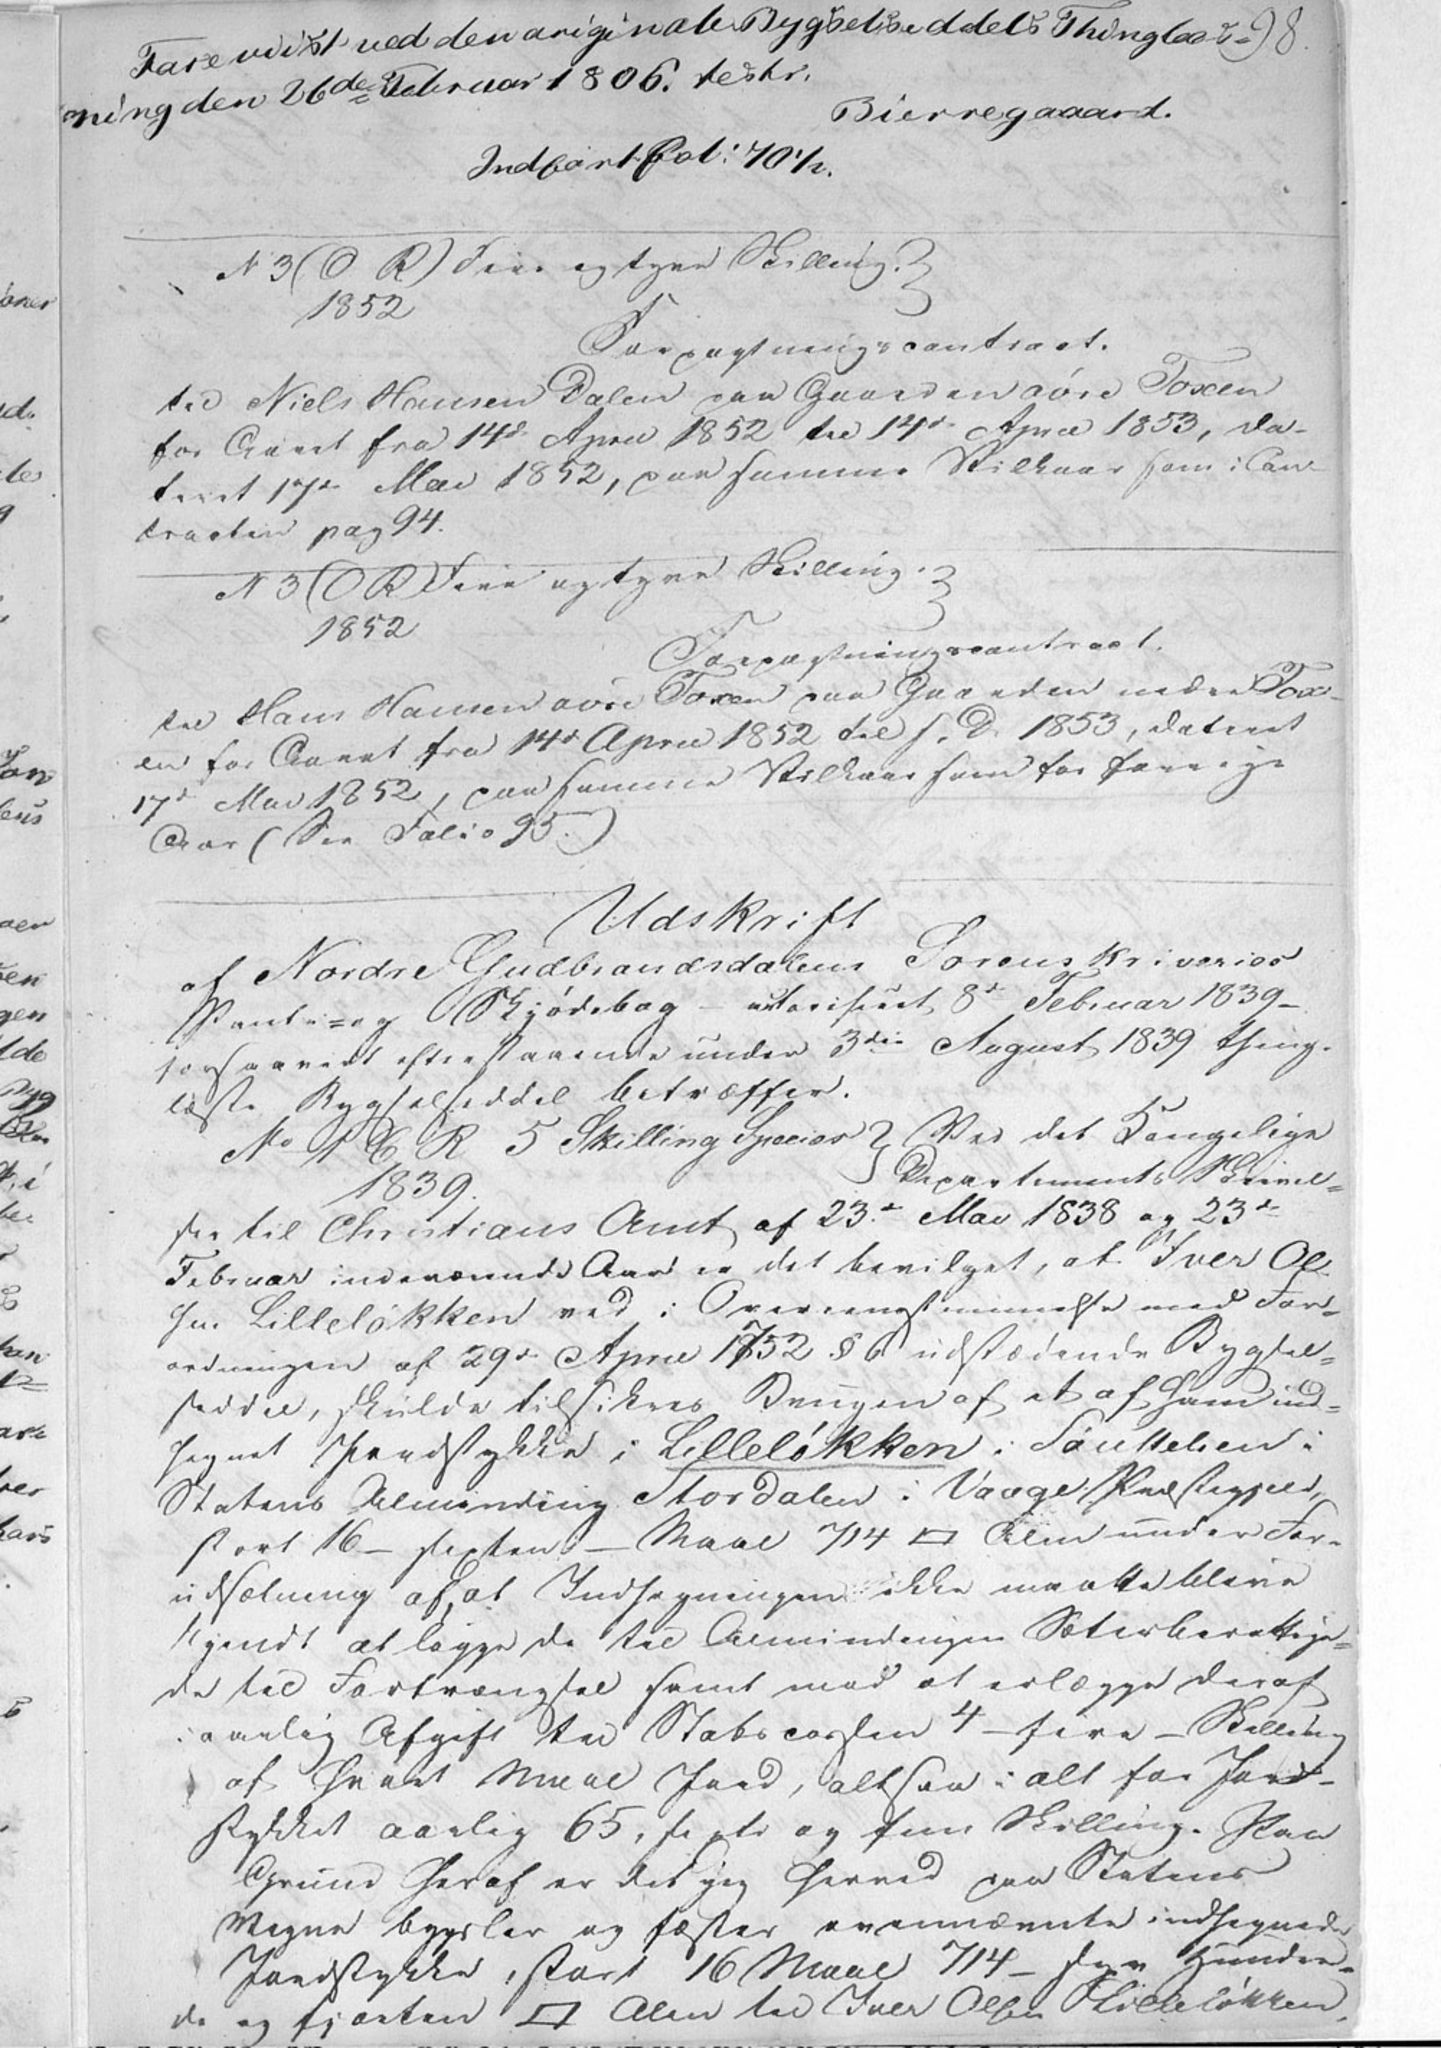 98.
Forevist ved den originale Bygselseddels Thinglæs-
ning den 26de Februar 1806. testr.
Bierregaaard.
Indført fol: 70 1/2.
N 3 (O R) Fire og tyve Skilling.
1852
Forpagtningscontract.
til Niels Hansen Dalen paa Gaarden øvre Toxen
for Aaret fra 14de April 1852 til 14de April 1853, da-
teret 17de Mai 1852, paa samme Vilkaar som i Con-
tracten pag 94.
N 3 (O R) Fire og tyve Skilling.
1852
Forpagtningscontract.
til Hans Hansen øvre Toxen paa Gaarden nedre Tox-
en for Aaret fra 14d April 1852 til s. D. 1853, dateret
17d Mai 1852, paa samme Vilkaar som for forrige
Aar (See Folio 95.)
Udskrift
af Nordre Gudbrandsdalens Sorenskriveries
Pante- og Skjødebog - autoriseret 8d Februar 1839 -
forsaavidt efterstaaende under 3die August 1839 thing-
læste Bygselseddel betræffer.
No 1 C R 5 Skilling Species Ved det Kongelige
1839. Departements Skrivel-
ser til Christians Amt af 23de Mai 1838 og 23de
Februar indeværende Aar er det bevilget, at Iver Ol-
sen Lilleløkken ved i Overeensstemmelse med For-
ordningen af 29de April 1752 § 6 udstædende Bygsel-
seddel, skulde tilsikres Brugen af et af ham ind-
hegnet Jordstykke i Lilleløkken i
Statens Alminding Stordalen i Vaage Præstegjeld,
stort 16 - sexten - Maal 714 □ Alen under For-
udsætning af, at Indhegningen ikke maatte blive
kjendt at ligge de til Almindingen Sæterberettige-
de til Fortrængsel samt mod at erlægge deraf
aarlig Afgift til Statscassen 4 - fire - Skilling
af hvert Maal Jord, altsaa i alt for Jord-
stykket aarlig 65, sexti og fem Skilling. Paa
Grund heraf er det jeg herved paa Statens
Vegne bygsler og fæster ovennævnte indhegnede
Jordstykke, stort 16 Maal 714 - syv Hundre-
de og fjorten □ Alen til Iver Olsen Lilleløkken,